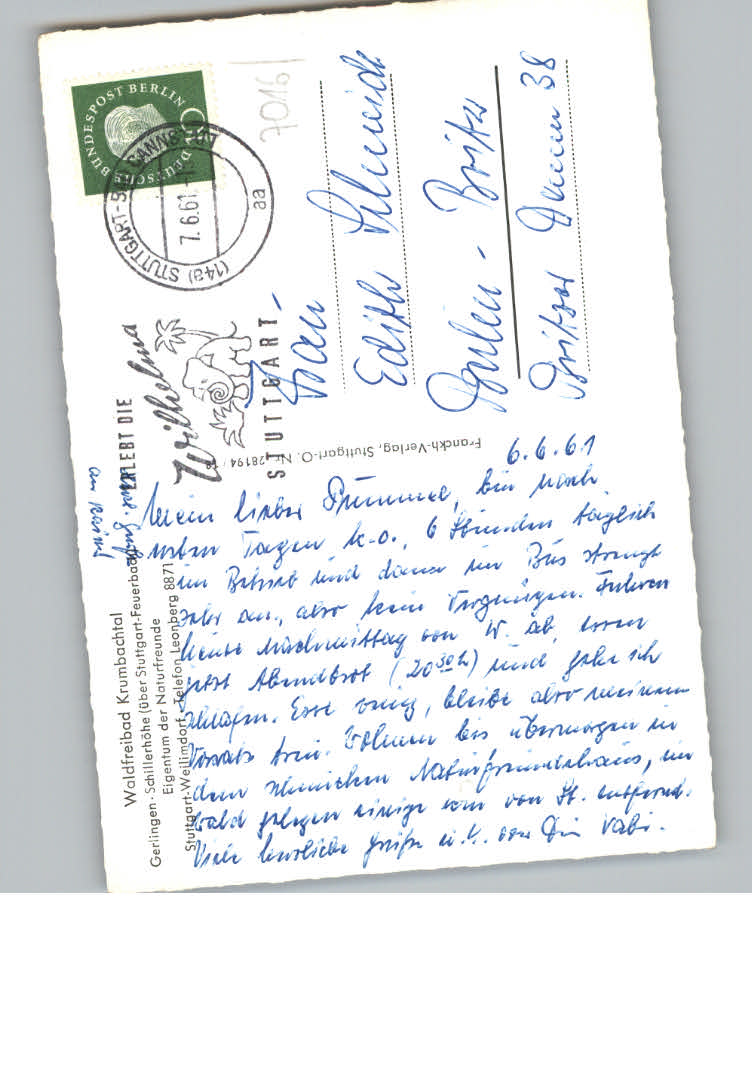 Waldfreibad Krumbachtal
Gerlingen-Schillerhöhe (über Stuttgart-Feuerbach)
Eigentum der Naturfreunde
Stuttgart-Weilimdorf, Telefon Leonberg 8871
Franckh-Verlag, Stuttgart-O. Nr. 28194
DEUTSCHE BUNDESPOST BERLIN
(14a) STUTTGART-BAD CANNSTATT
7.6.61
aa
ERLEBT DIE
Wilhelma
STUTTGART
7016
Frau
Edith Schneider
Berlin-Britz
Britzer Damm 38
6.6.61
Mein lieber bin nach
Tagen k.o., 6 Stunden täglich
im Betrieb und dann im Bus strengt
sehr an, also kein Vergnügen. Fuhren
heute Nachmittag von W. ab, essen
jetzt Abendbrot (20³⁰ h) und gehe ich
schlafen. Esse wenig, bleibe also meinem
Vorsatz treu. Wohnen bis übermorgen in
dem schmucken Naturfreundehaus, im
Wald gelegen einige km von St. entfernt.
Viele herzliche Grüße u. von Vati.